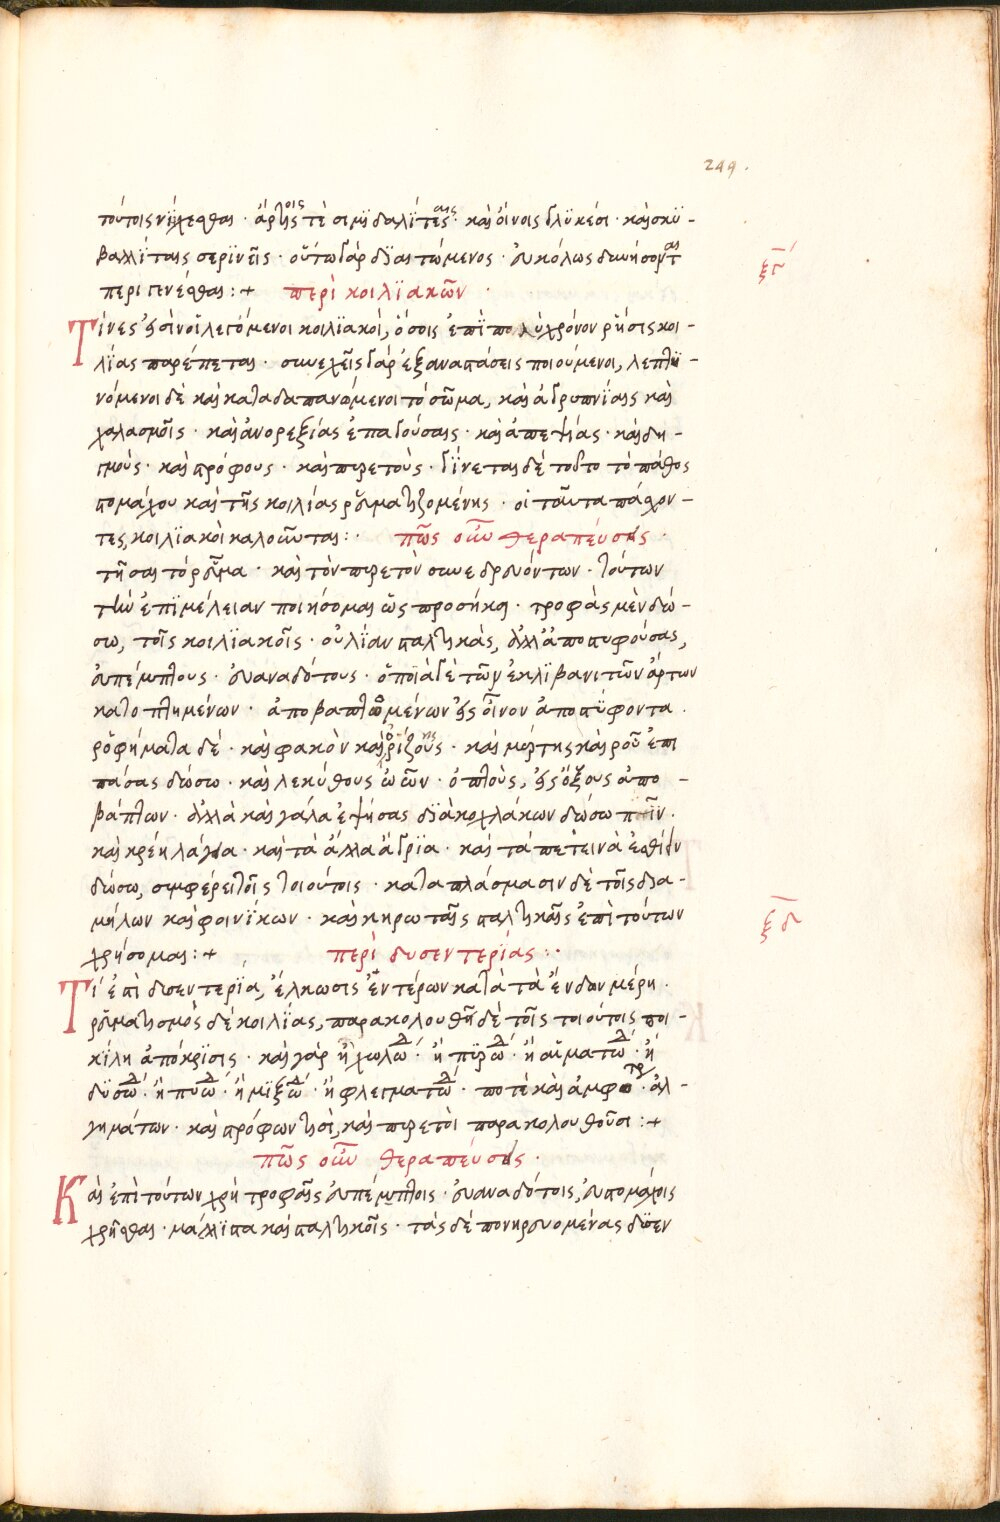 249.
τούτοις νήχεσθαι · ἄρτοις τὲ σιμϊδαλΐταις · καὶ οἴνοις γλϋκέσι · καὶ σκϋ -
βαλλίταις σερΐνεῖς · οὕτω γὰρ δϊαιτώμενος · εὐκόλως δϊωήσονται
περιγενέσθαι :+ περὶ κοιλϊακῶν ·
ξγ
Τίνες εἰσὶν οἵ λεγόμενοι κοιλϊακοὶ, ὅσοις ἐπϊ πολὺ χρόνον ρῆσις κοι -
λΐας παρέπεται · συνεχεῖς γὰρ ἐξαναστάσεις ποιούμενοι, λεπτϋ -
νόμενοι δὲ καὶ καταδαπανώμενοι τὸ σῶμα, καὶ ἀγρυπνίαις καὶ
χαλασμοῖς · καὶ ἀνορεξίας ἐπαγούσαις · καὶ ἀπεψίας · καὶ δη -
γμοὺς · καὶ στρόφους · καὶ πυρετοὺς · γΐνεται δὲ τοῦτο τὸ πάθος
στομάχου καὶ τῆς κοιλίας ρευματιζομένης · οἱ ταῦτα πάσχον -
τες, κοιλϊακοὶ καλοῦνται : · πῶς οὖν θεραπεύσεις ·
στῆσαι τὸ ρεῦμα · καὶ τὸν πυρετὸν συνεδρευόντων · τούτων
τὴν ἐπϊμέλειαν ποιήσομαι ὥς προσήκει · τροφὰς μὲν δώ -
σω, τοῖς κοιλϊακοῖς · οὐ λίαν σταλτικὰς, ἀλλ' ἀποστυφούσας,
εὐπέμπτους · εὐαναδότους · ὅποϊα γὲ τῶν ἐκ κλϊβανιτῶν ἄρτων
κατοπτημένων · ἀποβαπτωμένων εἰς οἶνον ἀποστύφοντα ·
ροφήματα δέ · καὶ φακὸν καὶ ὀρίζοντης · καὶ μύρτης καὶ ροῦ ἐπι
πάσας δώσω · καὶ λεκύθους ὠῶν · ὀπτοὺς, εἰς ὄξους ἀπο -
βάπτων · ἀλλὰ καὶ γάλα ἑψήσας δϊὰ κοχλάκων δώσω πιεῖν ·
καὶ κρέη λάγεια · καὶ τὰ ἄλλα ἄγρϊα · καὶ τὰ πετεινὰ ἐσθίειν
δώσω, συμφέρει τοῖς τοιούτοις · καταπλάσμασιν δὲ τοῖς δϊα -
μήλων καὶ φοινΐκων · καὶ κηρωταῖς σταλτικαῖς ἐπὶ τούτων
χρήσομαι :+ περὶ δυσεντερΐας : ·
ξδ
Τί ἐστὶ δυσεντερΐα, ἕλκωσις ἐντέρων κατὰ τὰ ἔνδον μέρη ·
ρευματισμὸς δὲ κοιλΐας, παρακολουθῆ δὲ τοῖς τοιούτοις ποι -
κίλη ἀπόκρϊσις · καὶ γὰρ ἢ χωλώδ · ἢ πϋρώδ · ἢ αἵματώδ · ἢ
δϋσώδ · ἢ πυώδ · ἢ μϊξώδ · ἢ φλεγματώδ · ποτὲ καὶ ἀμφοτρ · ἀλ -
γημάτων · καὶ στρόφων τισὶ, καὶ πυρετοὶ παρακολουθοῦσι :+
πῶς οὖν θεραπεύσεις ·
Καὶ ἐπὶ τούτων χρὴ τροφαῖς εὐπέμπτοις · εὐαναδότοις, εὐστομάχοις
χρῆσθαι · μάλλϊστα καὶ σταλτικοῖς · τὰς δὲ πονηρευομένας δϋσεν